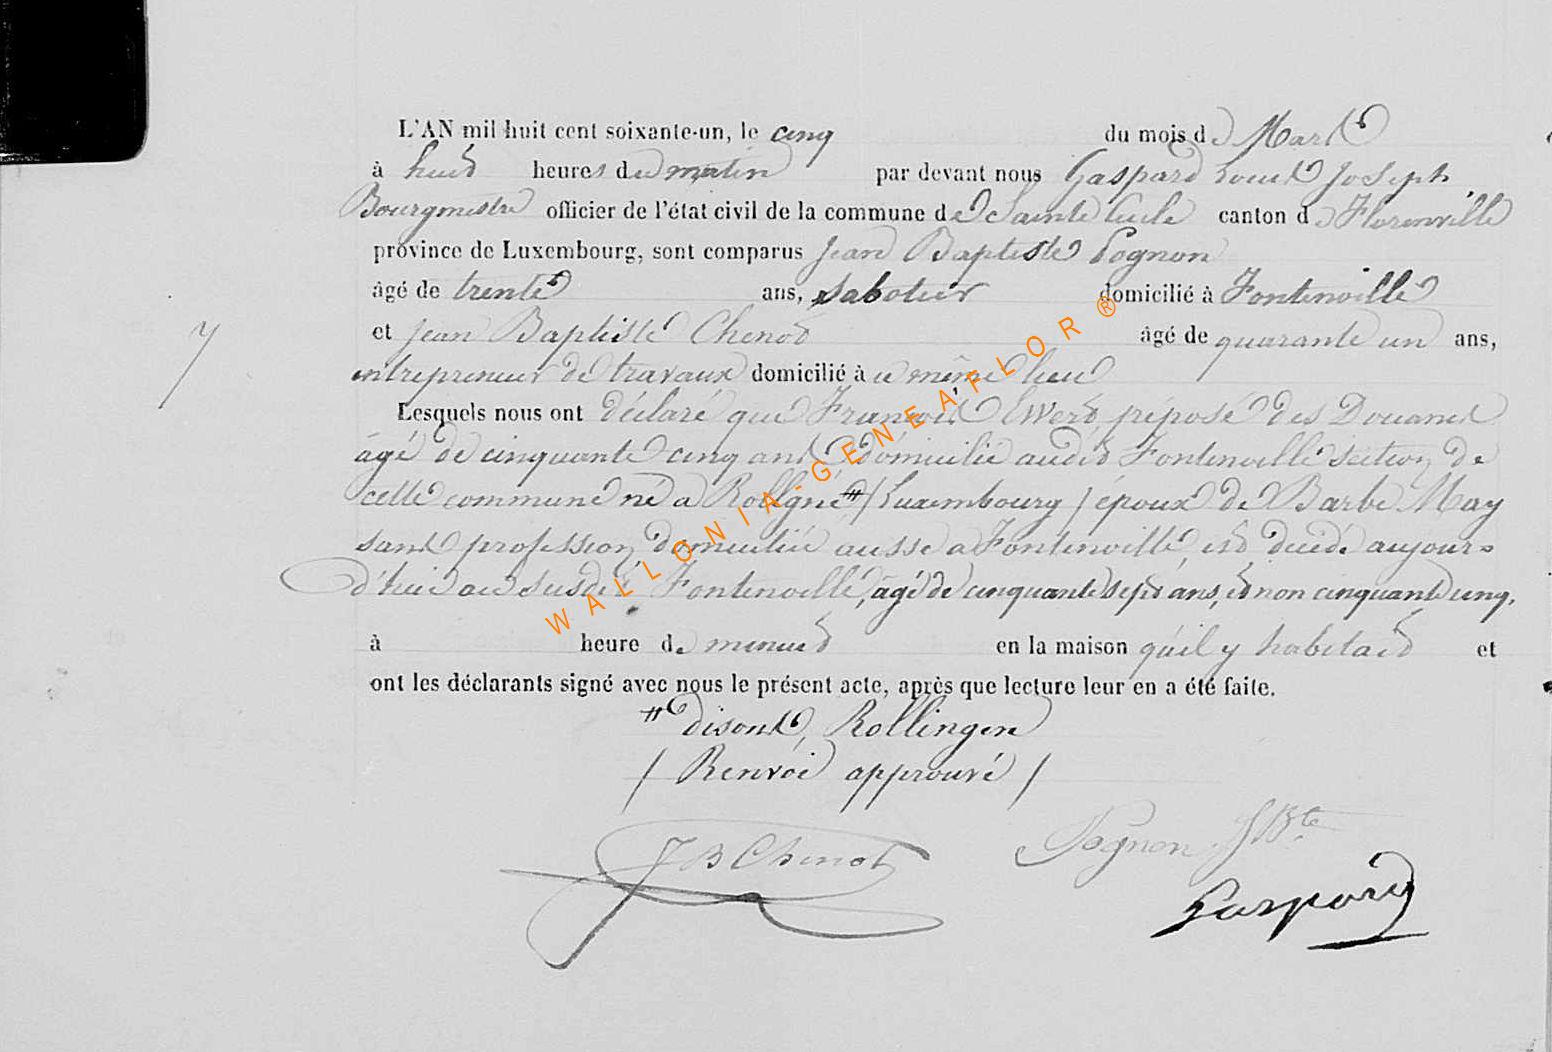 L'AN mil huit cent soixante-un, le cinq du mois de Mars
à huit heures du matin par devant nous Gaspard Louis Joseph
Bourgmestre officier de l'état civil de la commune de Sainte Cécile canton de Florenville
province de Luxembourg, sont comparus Jean Baptiste Pognon
âgé de trente ans, sabotier domicilié à Fontenoille
et Jean Baptiste Chenot âgé de quarante un ans,
7
entrepreneur de travaux domicilié à ce même lieu
Lesquels nous ont déclaré que François Ewert, préposé des Douanes
âgé de cinquante cinq ans domicilié audit Fontenoille section de
cette commune né à Rollgné # / Luxembourg / époux de Barbe May
sans profession domiciliée aussi à Fontenoille est décédé aujour=
d'hui au susdit Fontenoille, âgé de cinquante sept ans, et non cinquante cinq,
à heure de minuit en la maison qu'il y habitait et
ont les déclarants signé avec nous le présent acte, après que lecture leur en a été faite.
# disons, Rollingen
/ Renvoi approuvé /
J B Chenot Pognon J Bte
Gaspard
WALLONIA-GENEAFLOR ®